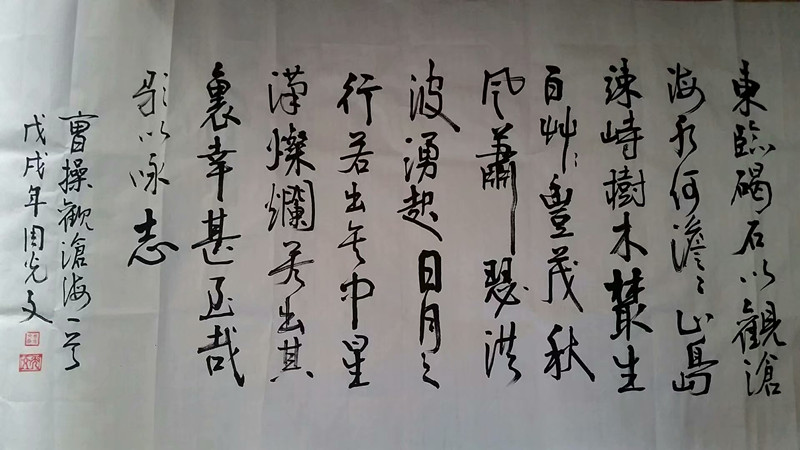 東臨碣石以觀滄
海水何澹〻山島
竦峙樹木叢生
百艸豐茂秋
風蕭瑟洪
波湧起日月之
行若出其中星
漢燦爛若出其
裏幸甚至哉
歌以咏志
曹操觀滄海一首
戊戌年周光文